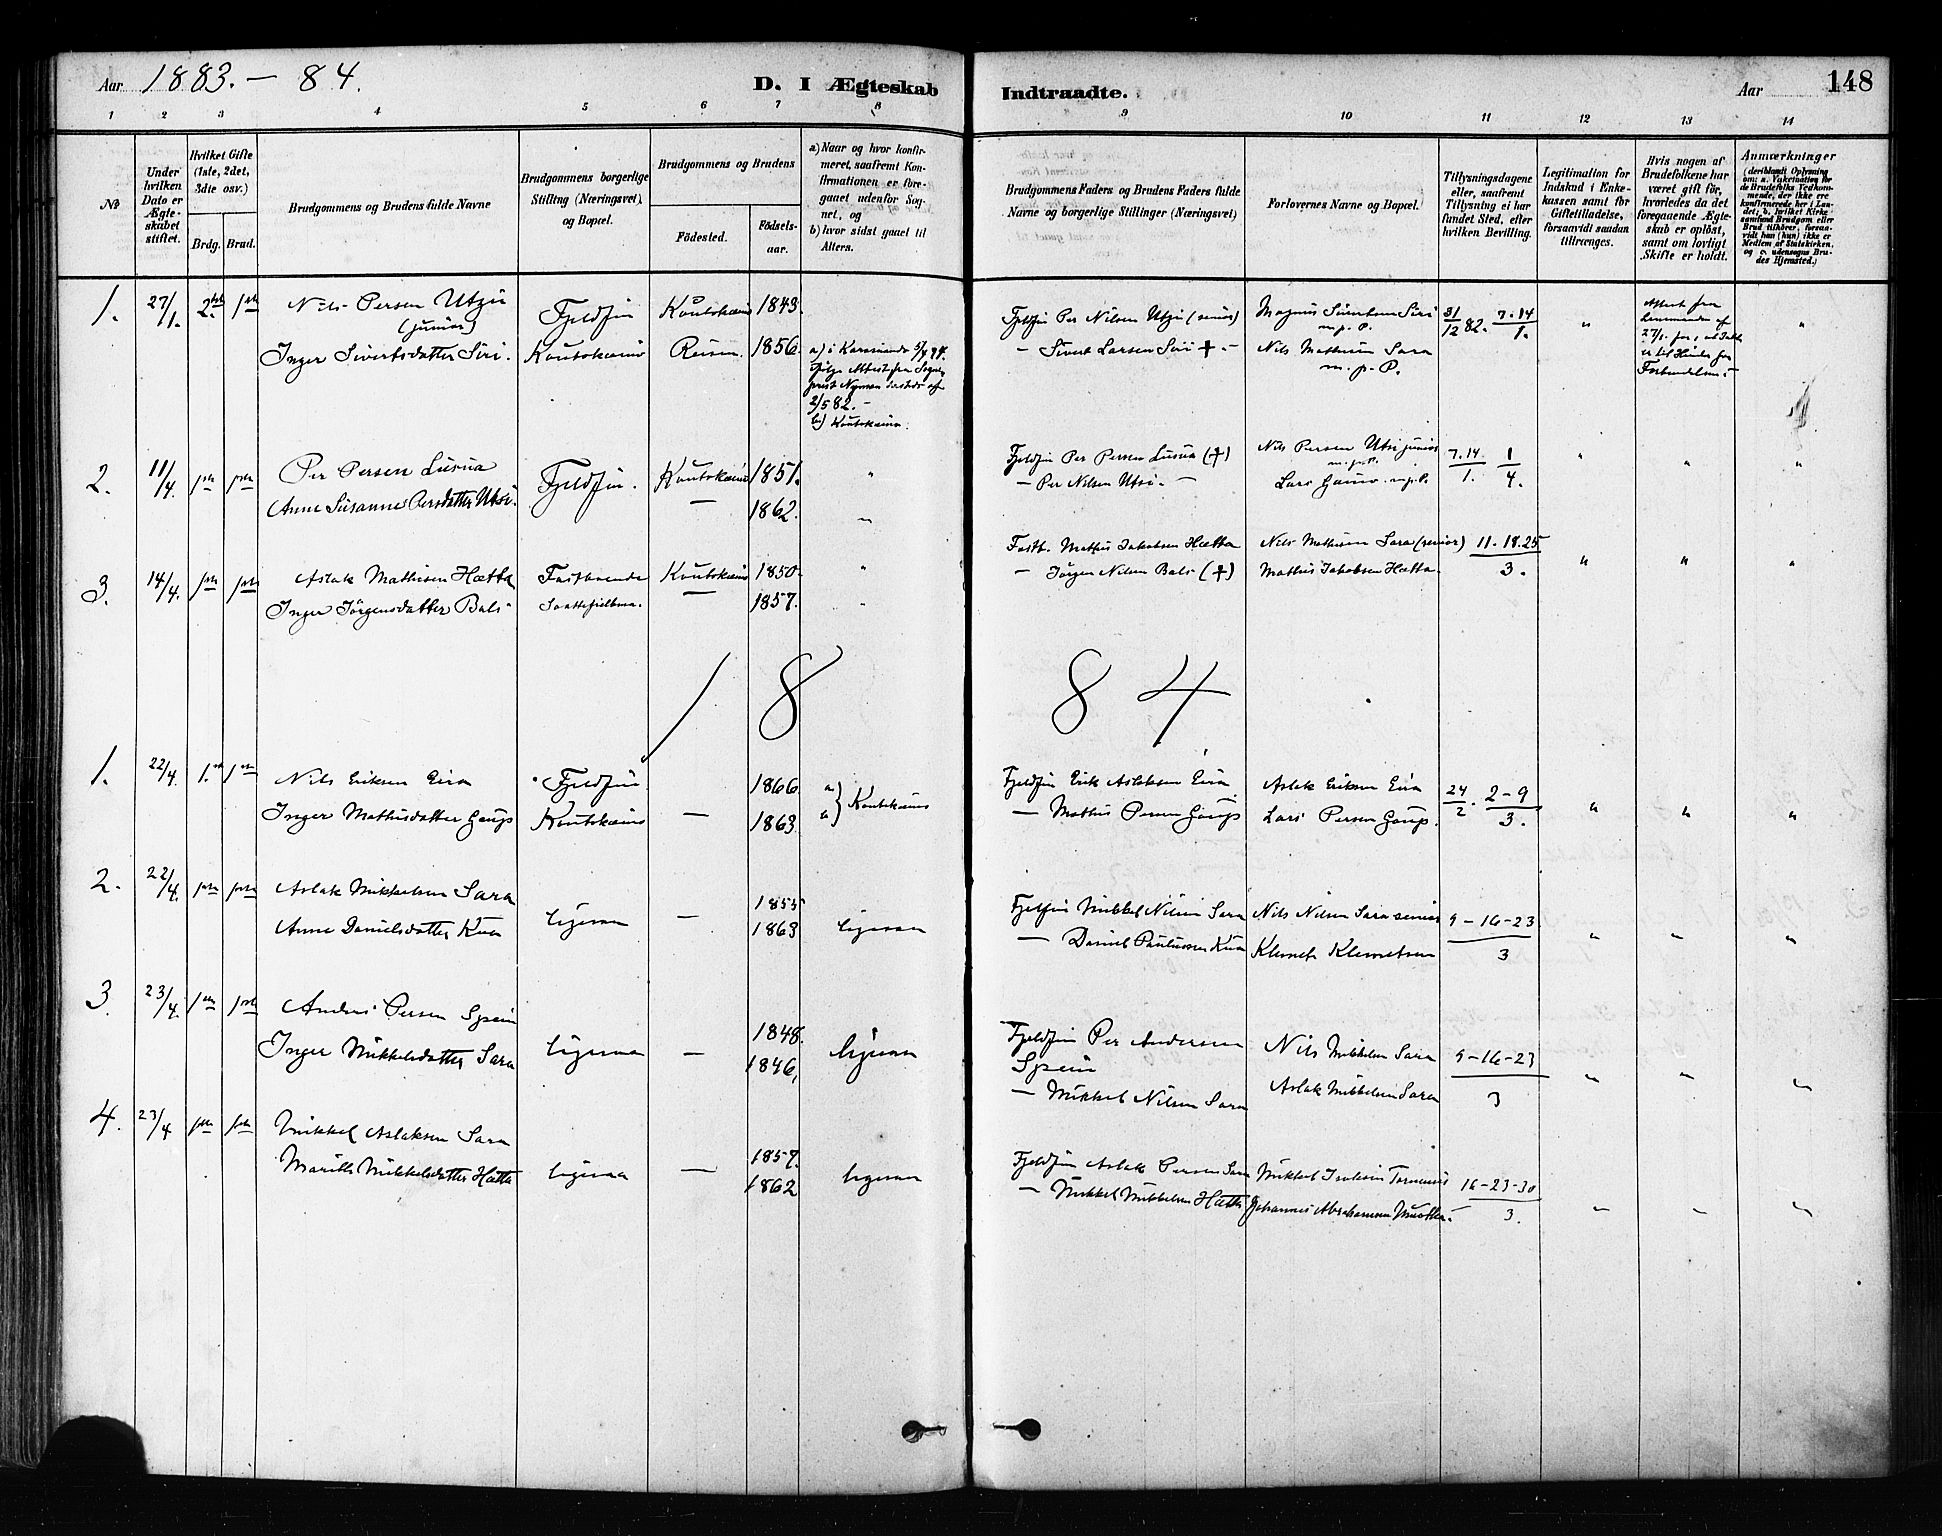 Aar 1883. - 84.
D. I Ægteskab Indtraadte.
Aar 148
1 2 3 4 5 6 7 8 9 10 11 12 13 14
No
Under hvilken Dato er Ægteskabet stiftet.
Hvilket Gifte (1ste, 2det, 3die osv.)
Brdg. Brud.
Brudgommens og Brudens fulde Navne
Brudgommens borgerlige Stilling (Næringsvei), og Bopæl.
Brudgommens og Brudens
Fødested.
Fødselsaar.
a) Naar og hvor konfirmeret, saafremt Konfirmationen er foregaaet udenfor Sognet, og
b) hvor sidst gaaet til Alters.
Brudgommens Faders og Brudens Faders fulde Navne og borgerlige Stillinger (Næringsvei)
Forlovernes Navne og Bopæl.
Tillysningsdagene eller, saafremt Tillysning ei har fundet Sted, efter hvilken Bevilling.
Legitimation for Indskud i Enkekassen samt for Giftetilladelse, forsaavidt saadan tiltrænges.
Hvis nogen af Brudefolkene har været gift før, hvorledes da det foregaaende Ægteskab er opløst, samt om lovligt Skifte er holdt.
Anmærkninger (deriblandt Oplysning om: a. Vakcination for de Brudefolks Vedkommende, der ikke ere konfirmerede her i Landet; b. hvilket Kirkesamfund Brudgom eller Brud tilhører, forsaavidt han (hun) ikke er Medlem af Statskirken, og c. udensogns Brudes Hjemsted.)
1. 27/1. 2det 1ste Nils Persen Utzi (junior) Fjeldfin Koutokeino 1843. Fjeldfin Per Nilsen Utzi (senior) 31/12 82. 7.14/1. " "
Inger Sivertsdatter Siri. Koutokeino Reisen 1856. - Sivert Larsen Siri † - Nils Mathisen Sara m.p.P.
2/5 82. -
b) Koutokeino.
2. 11/4. Per Persen Fjeldfin. Koutokeino 1851. " Fjeldfin Per Persen (†) Nils Persen Utsi junior m.p.P. 7.14/1. 1/4. " " "
Anne Susanne Persdatter Utsi. - 1862. " - Per Nilsen Utsi. - Lars m.p.P.
3. 14/4. Aslak Mathisen Hætta Fastboende Koutokeino 1850. " Fastb. Mathis Jakobsen Hætta Nils Mathisen Sara (senior) 11.18.25/3. " " "
Inger Jörgensdatter Bals - 1857. " - Jörgen Nilsen Bals (†) Mathis Jakobsen Hætta.
1884
1. 22/4. 1ste 1ste Nils Eriksen Eira Fjeldfin 1866 a Fjeldfin Erik Aslaksen Eira Aslak Eriksen Eira 24/2. 2-9/3. " " "
Inger Mathisdatter Gaup Koutokeino - 1863 Koutokeino - Mathis Persen Gaup Lars Persen Gaup.
2. 22/4. Aslak Mikkelsen Sara 1855 Fjeldfin Mikkel Nilsen Sara Nils Nilsen Sara senior 9-16-23/3 " " "
Anne Danielsdatter ligesaa - 1863 ligesaa - Daniel Klemet Klemetsen
3. 23/4. 1ste 1ste Anders Persen 1848. Fjeldfin Per Andersen Nils Mikkelsen Sara 9-16-23/3 " " "
Inger Mikkelsdatter Sara ligesaa - 1846, ligesaa - Mikkel Nilsen Sara Aslak Mikkelsen Sara
4. 23/4 Mikkel Aslaksen Sara 1857. Fjeldfin Aslak Persen Sara Mikkel 16-23-30/3. " " "
Marith Mikkelsdatter Hætta ligesaa - 1862 ligesaa - Mikkel Mikkelsen Hætta Johannes Abrahamsen